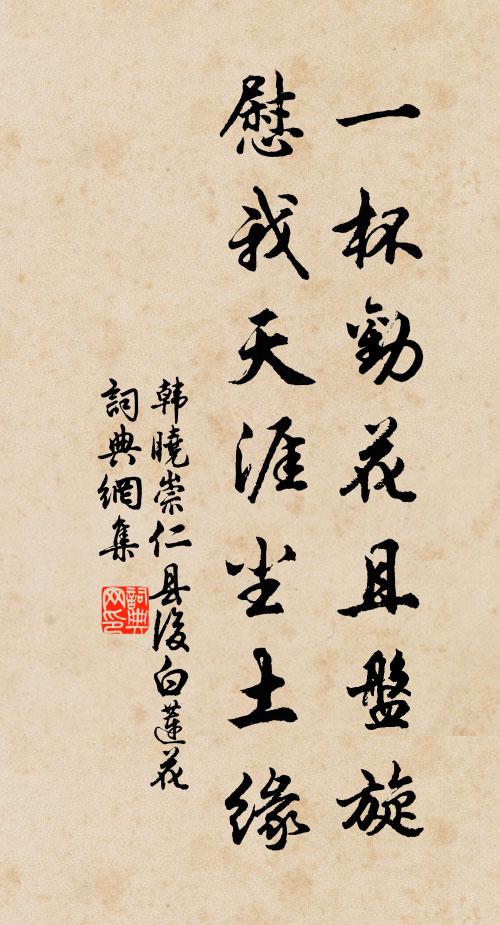 一杯勸花且盤旋
慰我天涯尘土緣
韩曉崇仁县後白蓮花
詞典網集
詞典网印